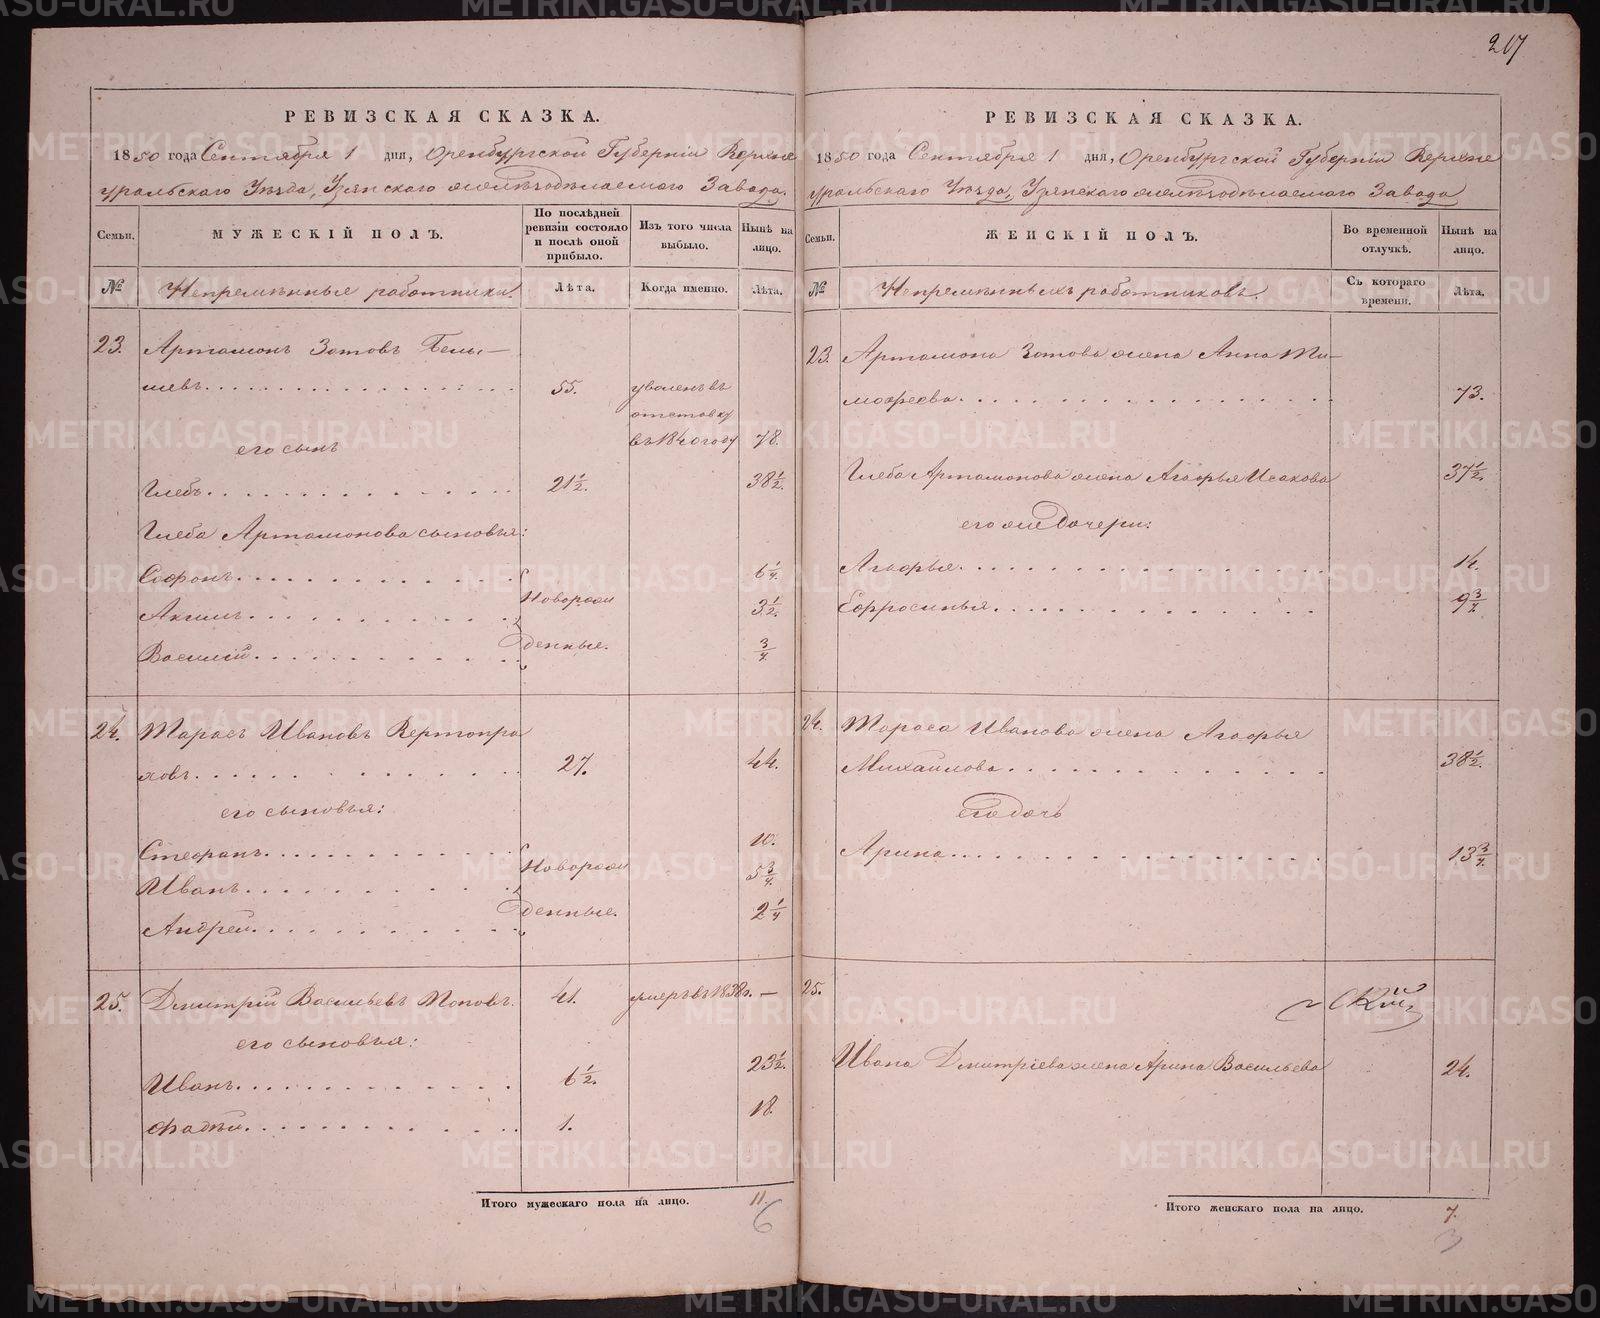 217
РЕВИЗСКАЯ СКАЗКА.
1850 года Сентября 1 дня, Оренбургской Губерніи Верхне
уральскаго Уѣзда, Узянскаго желѣзодѣлаемаго Завода.
Семьи.
МУЖЕСКІЙ ПОЛЪ.
По послѣдней ревизіи состояло и послѣ оной прибыло.
Изъ того числа выбыло.
Нынѣ на лицо.
№
Непремѣнные работники.
Лѣта.
Когда именно.
Лѣта.
23. Артамонъ Зотовъ Белы-
шевъ. 55. уволенъ въ
отставку
въ 1840 году 78.
его сынъ
Глебъ. 21½. 38½.
Глеба Артамонова сыновья:
Софонъ. 6¼.
Акимъ. Новорож 3½.
Василій. денные. ¾.
24. Тарасъ Ивановъ Вертопра
ховъ. 27. 44.
его сыновья:
Стефанъ. 10.
Иванъ. Новорож 5¾.
Андрей. денные. 2¼
25. Дмитрій Васильевъ Поповъ. 41. умеръ въ 1838 г. —
его сыновья:
Иванъ. 6½. 23½.
Фадѣй. 1. 18.
Итого мужескаго пола на лицо. 11.
6
РЕВИЗСКАЯ СКАЗКА.
1850 года Сентября 1 дня, Оренбургской Губерніи Верхне
уральскаго Уѣзда, Узянскаго желѣзодѣлаемаго Завода
Семьи.
ЖЕНСКІЙ ПОЛЪ.
Во временной отлучкѣ.
Нынѣ на лицо.
№
Непремѣнныхъ работниковъ.
Съ котораго времени.
Лѣта.
23. Артамона Зотова жена Анна Ти-
мофеева. 73.
Глеба Артамонова жена Агафья Исакова 37½.
его же дочери:
Агафья. 14.
Ефросинья. 9¾
24. Тараса Иванова жена Агафья
Михайлова. 38½.
его дочь
Арина. 13¾.
25.
Ивана Дмитріева жена Арина Васильева 24.
Итого женскаго пола на лицо. 7.
3
METRIKI.GASO-URAL.RU